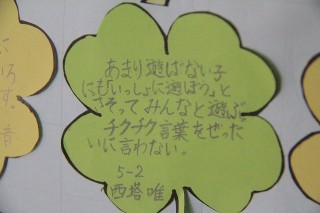 あまり遊ばない子
にも「いっしょに遊ぼう」と
さそってみんなと遊ぶ
チクチク言葉をぜった
いに言わない。
5-2
西塔唯
す。
音